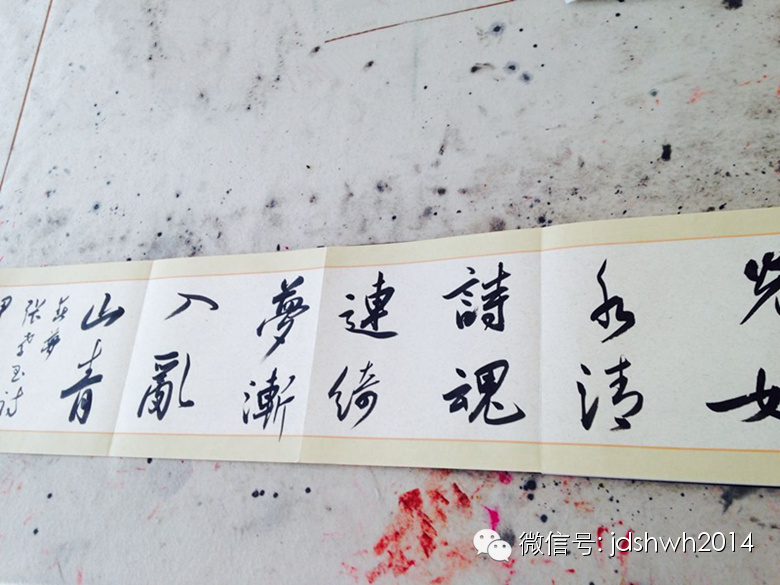 水清
詩魂
連綺
夢漸
入亂
山青
微信号: jdshwh2014